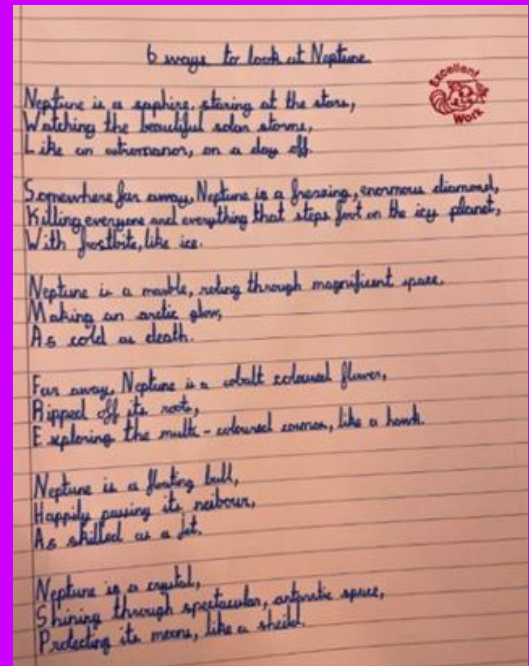 6 ways to look at Neptune
Excellent
Work
Neptune is a saphire, staring at the stars,
Watching the beautiful solar storms,
Like an on a day off.
Somewhere far away, Neptune is a freesing, enormous diamond,
Killing everyone and everything that steps foot on the icy planet,
With frostbite, like ice.
Neptune is a marble, roling through magnificent space,
Making an arctic glow,
As cold as death.
Far away, Neptune is a cobalt coloured flower,
Ripped off its roots,
Exploring the multi-coloured cosmos, like a hawk.
Neptune is a floating ball,
Happily passing its neibour,
As skilled as a Jet.
Neptune is a crystal,
Shining through spectacular, space,
Protecting its moons, like a